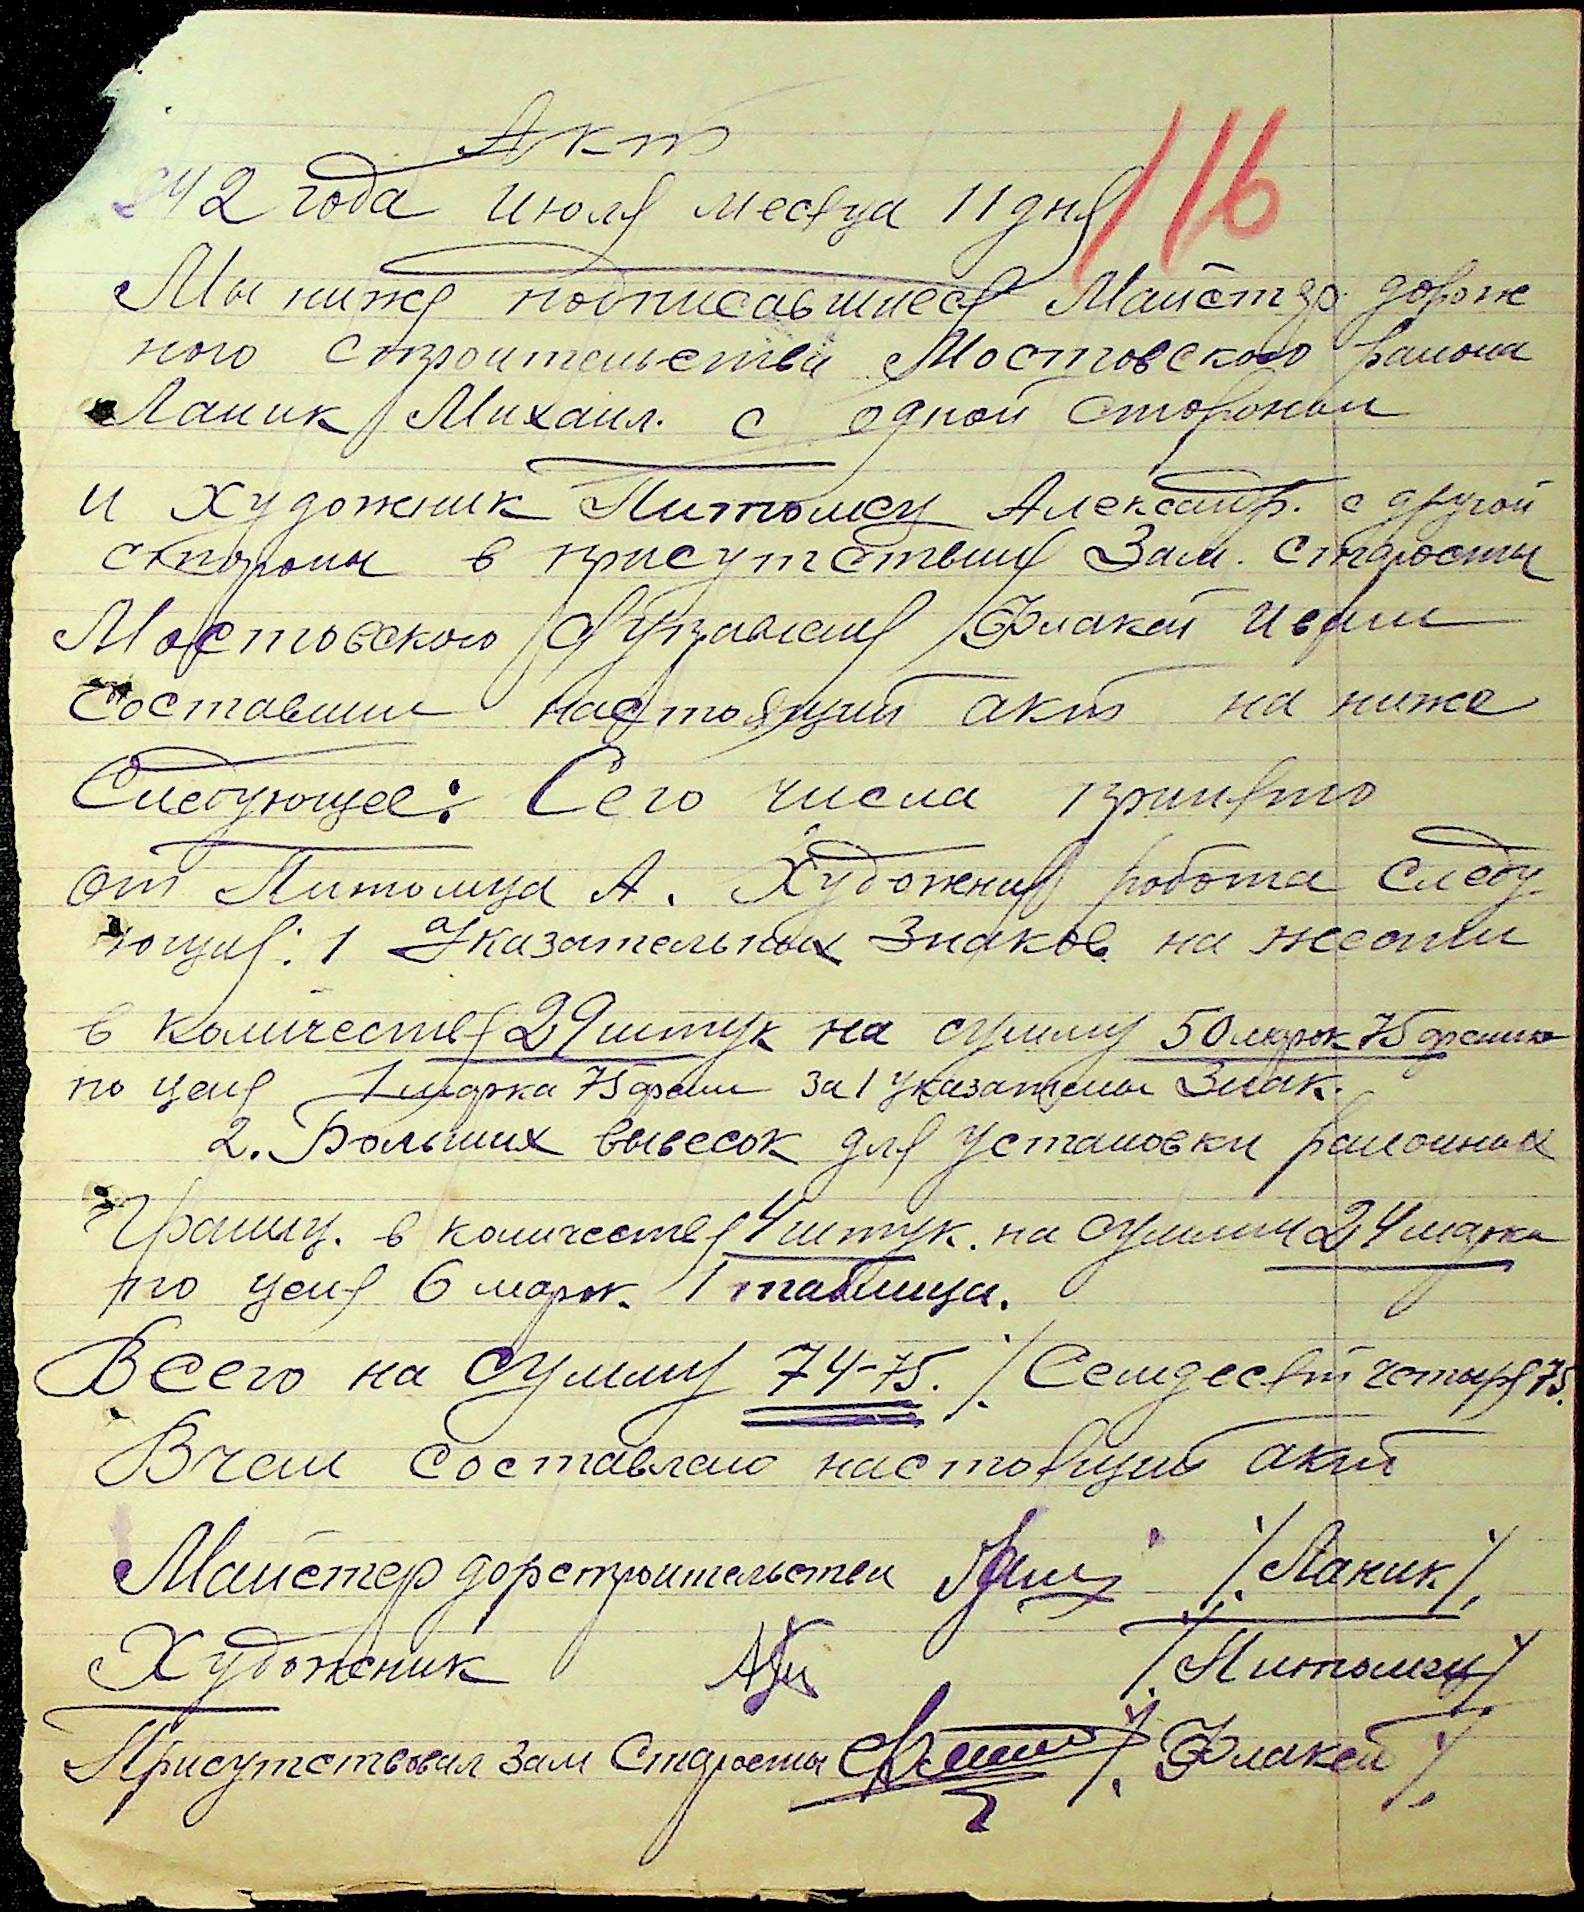 Акт
116
942 года июля месяца 11 дня
Мы ниже подписавшиеся Майстр дорож
ного строительства Мостовского района
Ланик Михаил. с одной стороны
и художник Питомец Александр. с другой
стороны в присутствии Зам. старосты
Мостовского Флакей Иван
составили настоящий акт на ниже
Следующее: Сего числа принято
от Питомца А. Художник работа следу
ющия: 1 Указательных Знаков на жести
в количестве 29 штук на сумму 50 марок 75 фениг
по цене 1 марка 75 фени за 1 указательн Знак.
2. Больших вывесок для установки районных
Границ. в количестве 4 штук. на сумму 24 марки
по цене 6 марок. 1 таблица.
Всего на сумму 74-75. /. Семдесят четыре 75.
В чем составлено настоящий акт
Майстер дорстроительства /. Ланик /.
Художник /. Питомец /.
Присутствовал зам Старосты /. Флакей /.